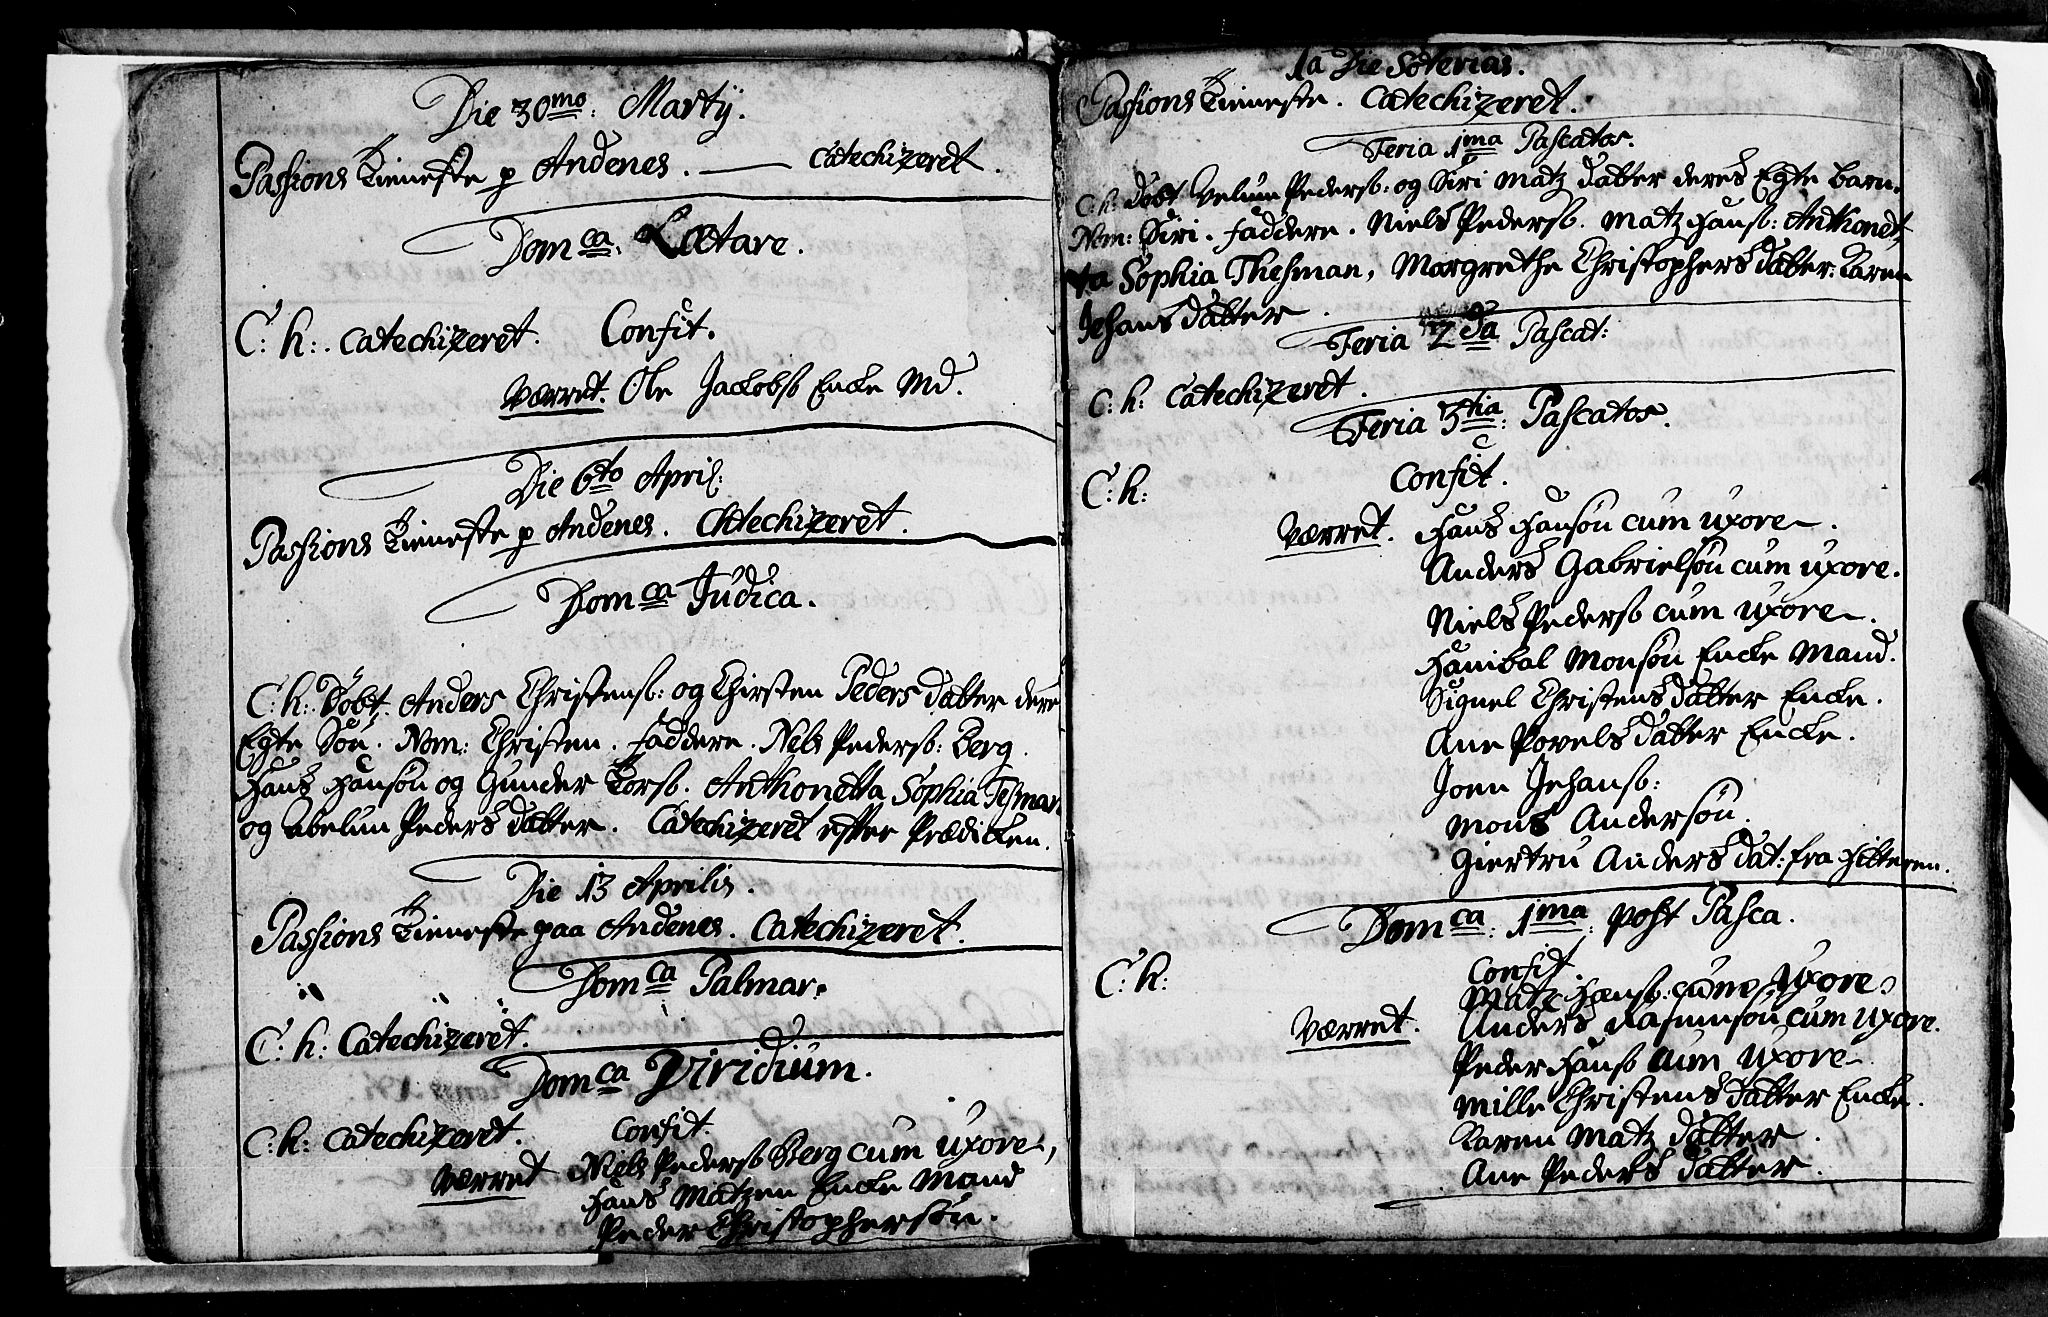 Die 30mo: Martij.
Passions Tieneste p Andenes. — Catechizeret.
Domca. Lætare.
C: h: Catechizeret. Confit.
Værret. Ole Jackobsß Encke Md.
Die 6to April:
Passions Tieneste p Andenes. Catechizeret.
Domca Judica.
C: h: Døbt. Anders Christensß: og Chirsten Peders datter dere
Egte Søn. Nom: Christen. faddere. Nels Pedersß: Berg.
Hans Hansøn og Gunder Torsß. Anthonetta Sophia Tesman
og Abelun Peders datter. Catechizeret efter Prædicken.
Die 13 Aprilis.
Passions Tieneste paa Andenes. Catechizeret.
Domca Palmar.
C: h: Catechizeret.
Domca Viridium.
C: h: Catechizeret. Confit.
Værret Niels Pedersß Berg cum uxore,
Hans Matzen Encke Mand
Peder Christophersøn.
1a Die Soterias.
Passions Tieneste. Catechizeret.
Feria 1ma Pascatos.
C: h: Døbt Velum Pedersß: og Siri Matz datter deres Egte barn.
Nom: Siri. faddere. Niels Pedersß. Matz Hansß: Anthonet
ta Sophia Thesman, Margrethe Christophers datter: Karen
Johans datter.
Feria 2da Pascat:
C: h: Catechizeret.
Feria 3tia: Pascatos.
C: h: Confit.
Værret. Hans Hansøn cum uxore.
Anders Gabrielsøn cum uxore.
Niels Pedersß cum uxore.
Hanibal Monsøn Encke Mand.
Signel Christens datter Encke.
Ane Povels datter Encke.
Joen Jehansß:
Mons Andersøn.
Giertru Anders dat: fra Hilteren.
Domca: 1ma: post Pasca.
C: h: Confit.
Matz Hansß: cum Uxore
Værret. Anders Rasmusøn cum uxore.
Peder Hansß cum uxore.
Mille Christens datter Encke.
Karen Matz datter.
Ane Peders datter.